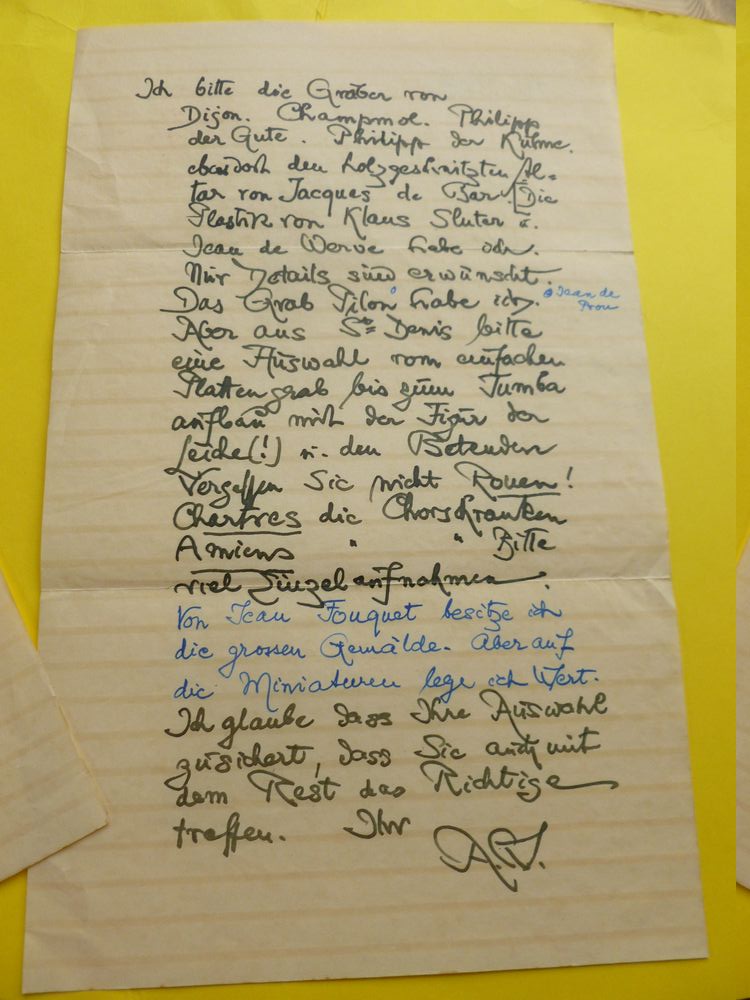 Ich bitte die Gräber von
Dijon. Champmol. Philipp
der Gute. Philipp der Kühne.
ebendort den holzgeschnitzten Al-
tar von Jacques de Bar [Die
Plastik von Klaus Sluter u.
Jean de Werve habe ich.
Nur Details sind erwünscht.
Das Grab Pilon habe ich. Jean de
Aber aus St Denis bitte
eine Auswahl vom einfachen
Plattengrab bis zum Tumba
aufbau mit der Figur der
Leiche(!) u. den Betenden
Vergessen Sie nicht Rouen!
Chartres die Chorschranken
Amiens " " Bitte
viel Einzelaufnahmen.
Von Jean Fouquet besitze ich
die grossen Gemälde. Aber auf
die Miniaturen lege ich Wert.
Ich glaube dass Ihre Auswahl
zusichert, dass Sie auch mit
dem Rest das Richtige
treffen. Ihr